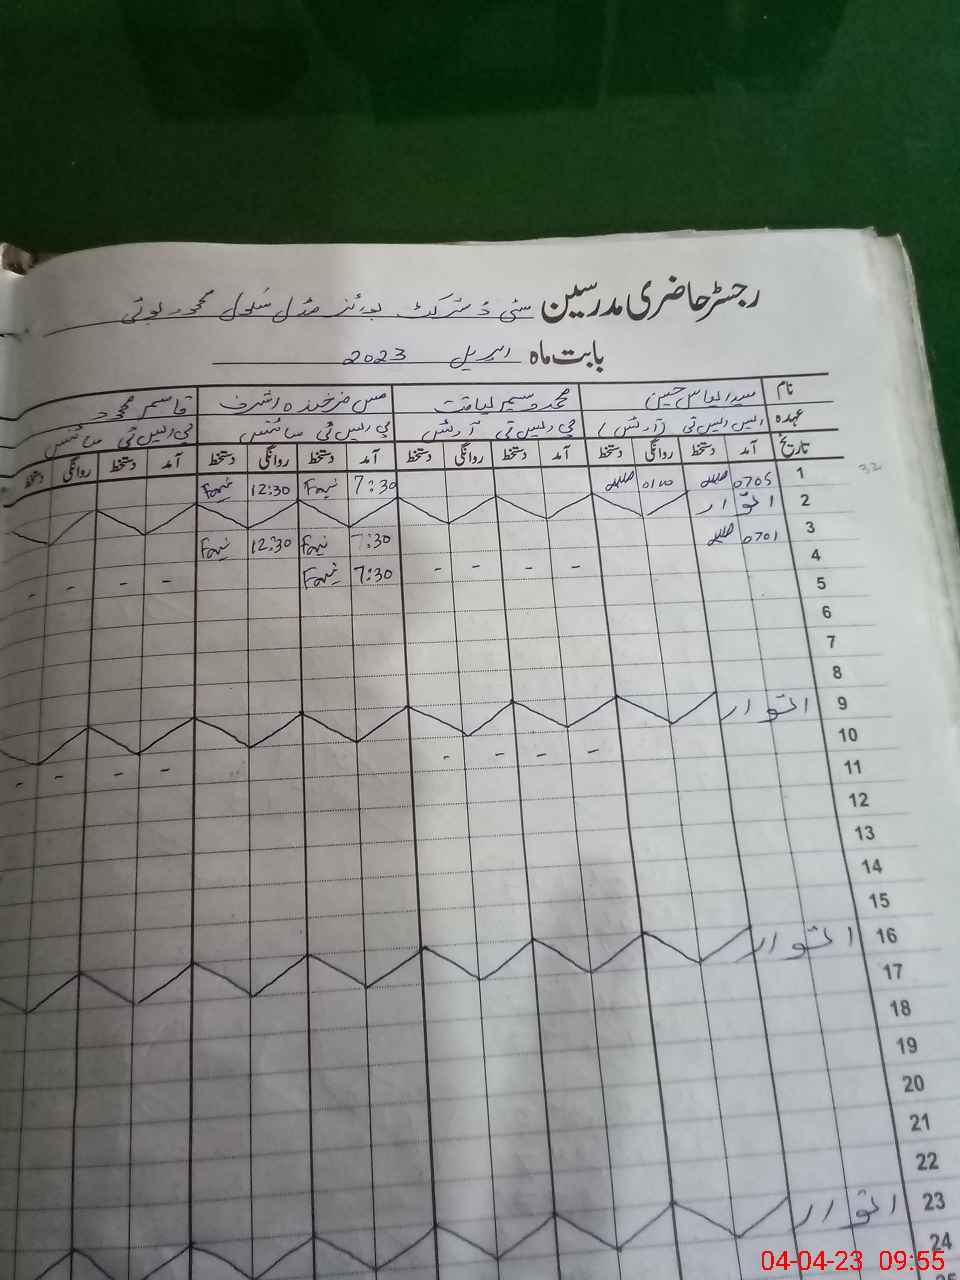 رجسٹر حاضری مدرسین سٹی ڈسٹرکٹ بوائز مڈل سکول محمود بوٹی
بابت ماہ اپریل 2023
نام سید الماس حسین محمد وسیم لیاقت مس فرخندہ اشرف قاسم محمود
عہدہ ایس ایس ٹی (آرٹس) پی ایس ٹی آرٹس پی ایس ٹی سائنس پی ایس ٹی سائنس
تاریخ آمد دستخط روانگی دستخط آمد دستخط روانگی دستخط آمد دستخط روانگی دستخط آمد دستخط روانگی دستخط
1 0705 7:30 12:30
2 اتوار
3 0701 7:30 12:30
4 - - - - 7:30 - - - - -
5
6
7
8
9 اتوار
10
11 - - - - - - - -
12
13
14
15
16 اتوار
17
18
19
20
21
22
23 اتوار
24
25
32
04-04-23 09:55